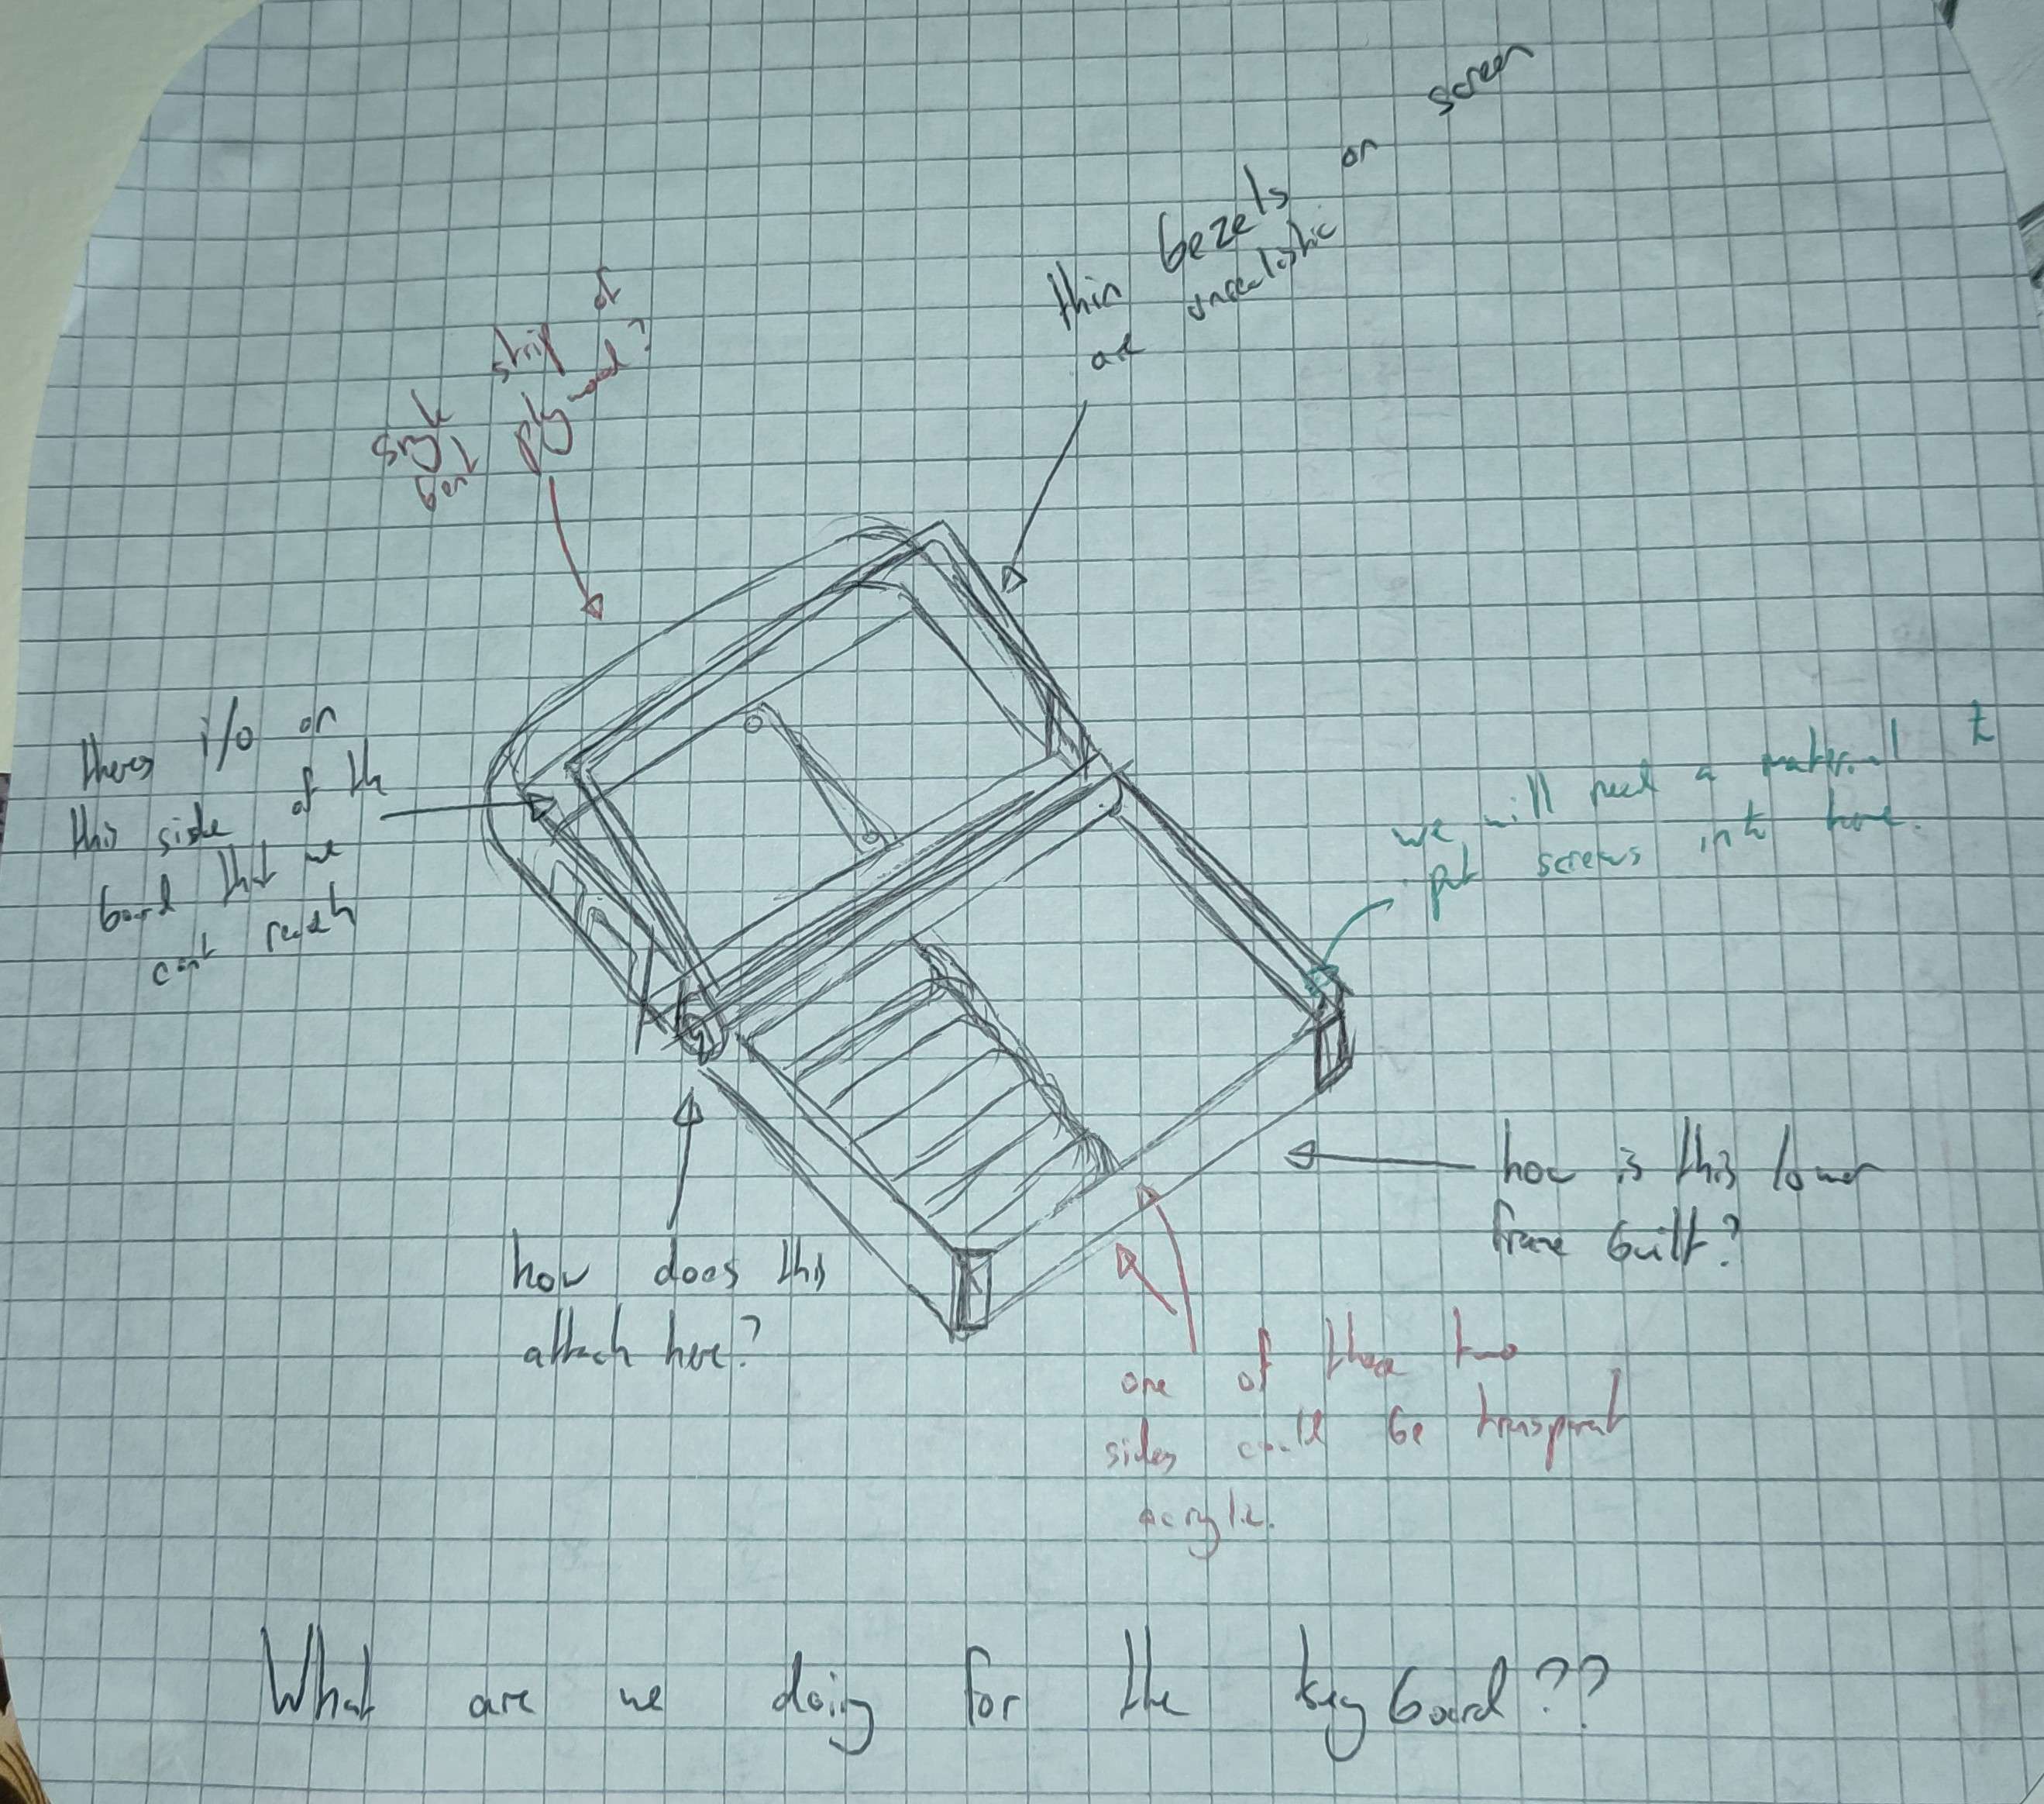 thin bezels on screen
are unrealistic
single strip of
bent plywood?
theres i/o on
this side of the
board that we
cant reach
we will need a material to
put screws into here.
how is this lower
frame built?
how does this
attach here?
one of these two
sides could be transparent
acrylic.
What are we doing for the keyboard??